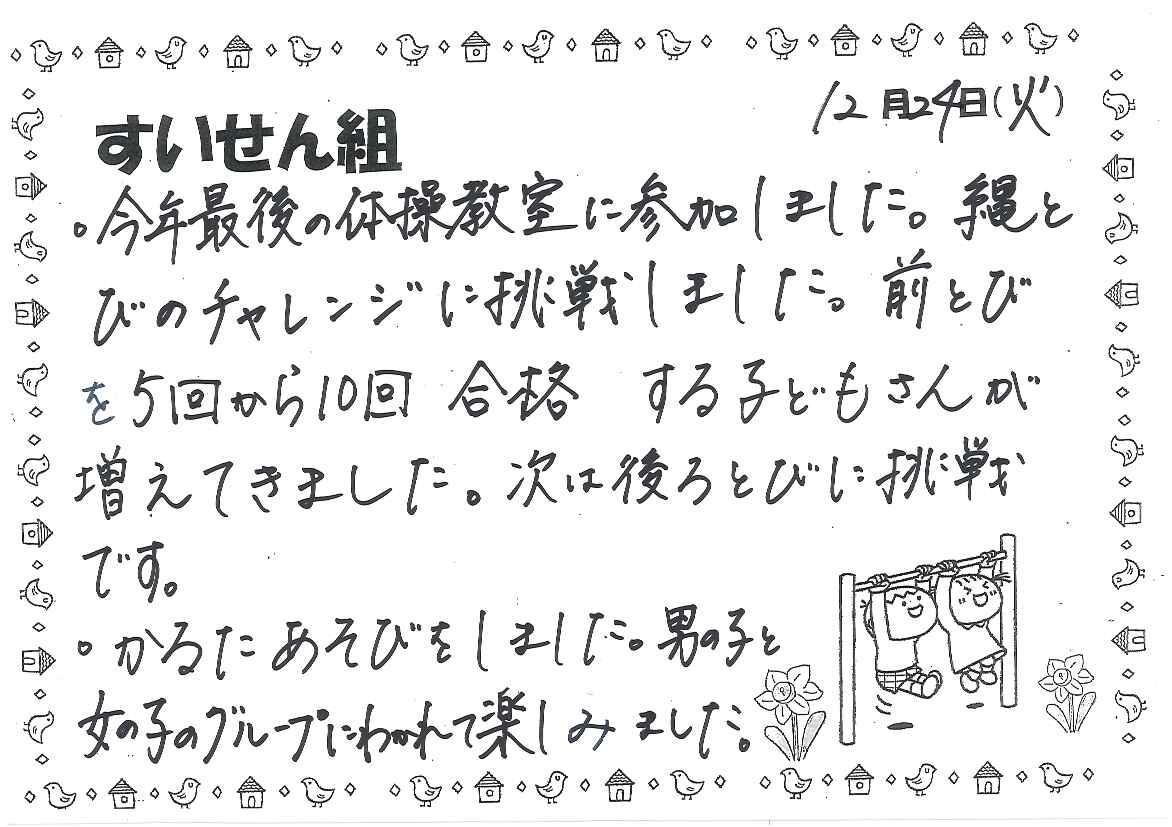 12月24日(火)
すいせん組
。今年最後の体操教室に参加しました。縄と
びのチャレンジに挑戦しました。前とび
を5回から10回 合格 する子どもさんが
増えてきました。次は後ろとびに挑戦
です。
。かるたあそびをしました。男の子と
女の子のグループにわかれて楽しみました。